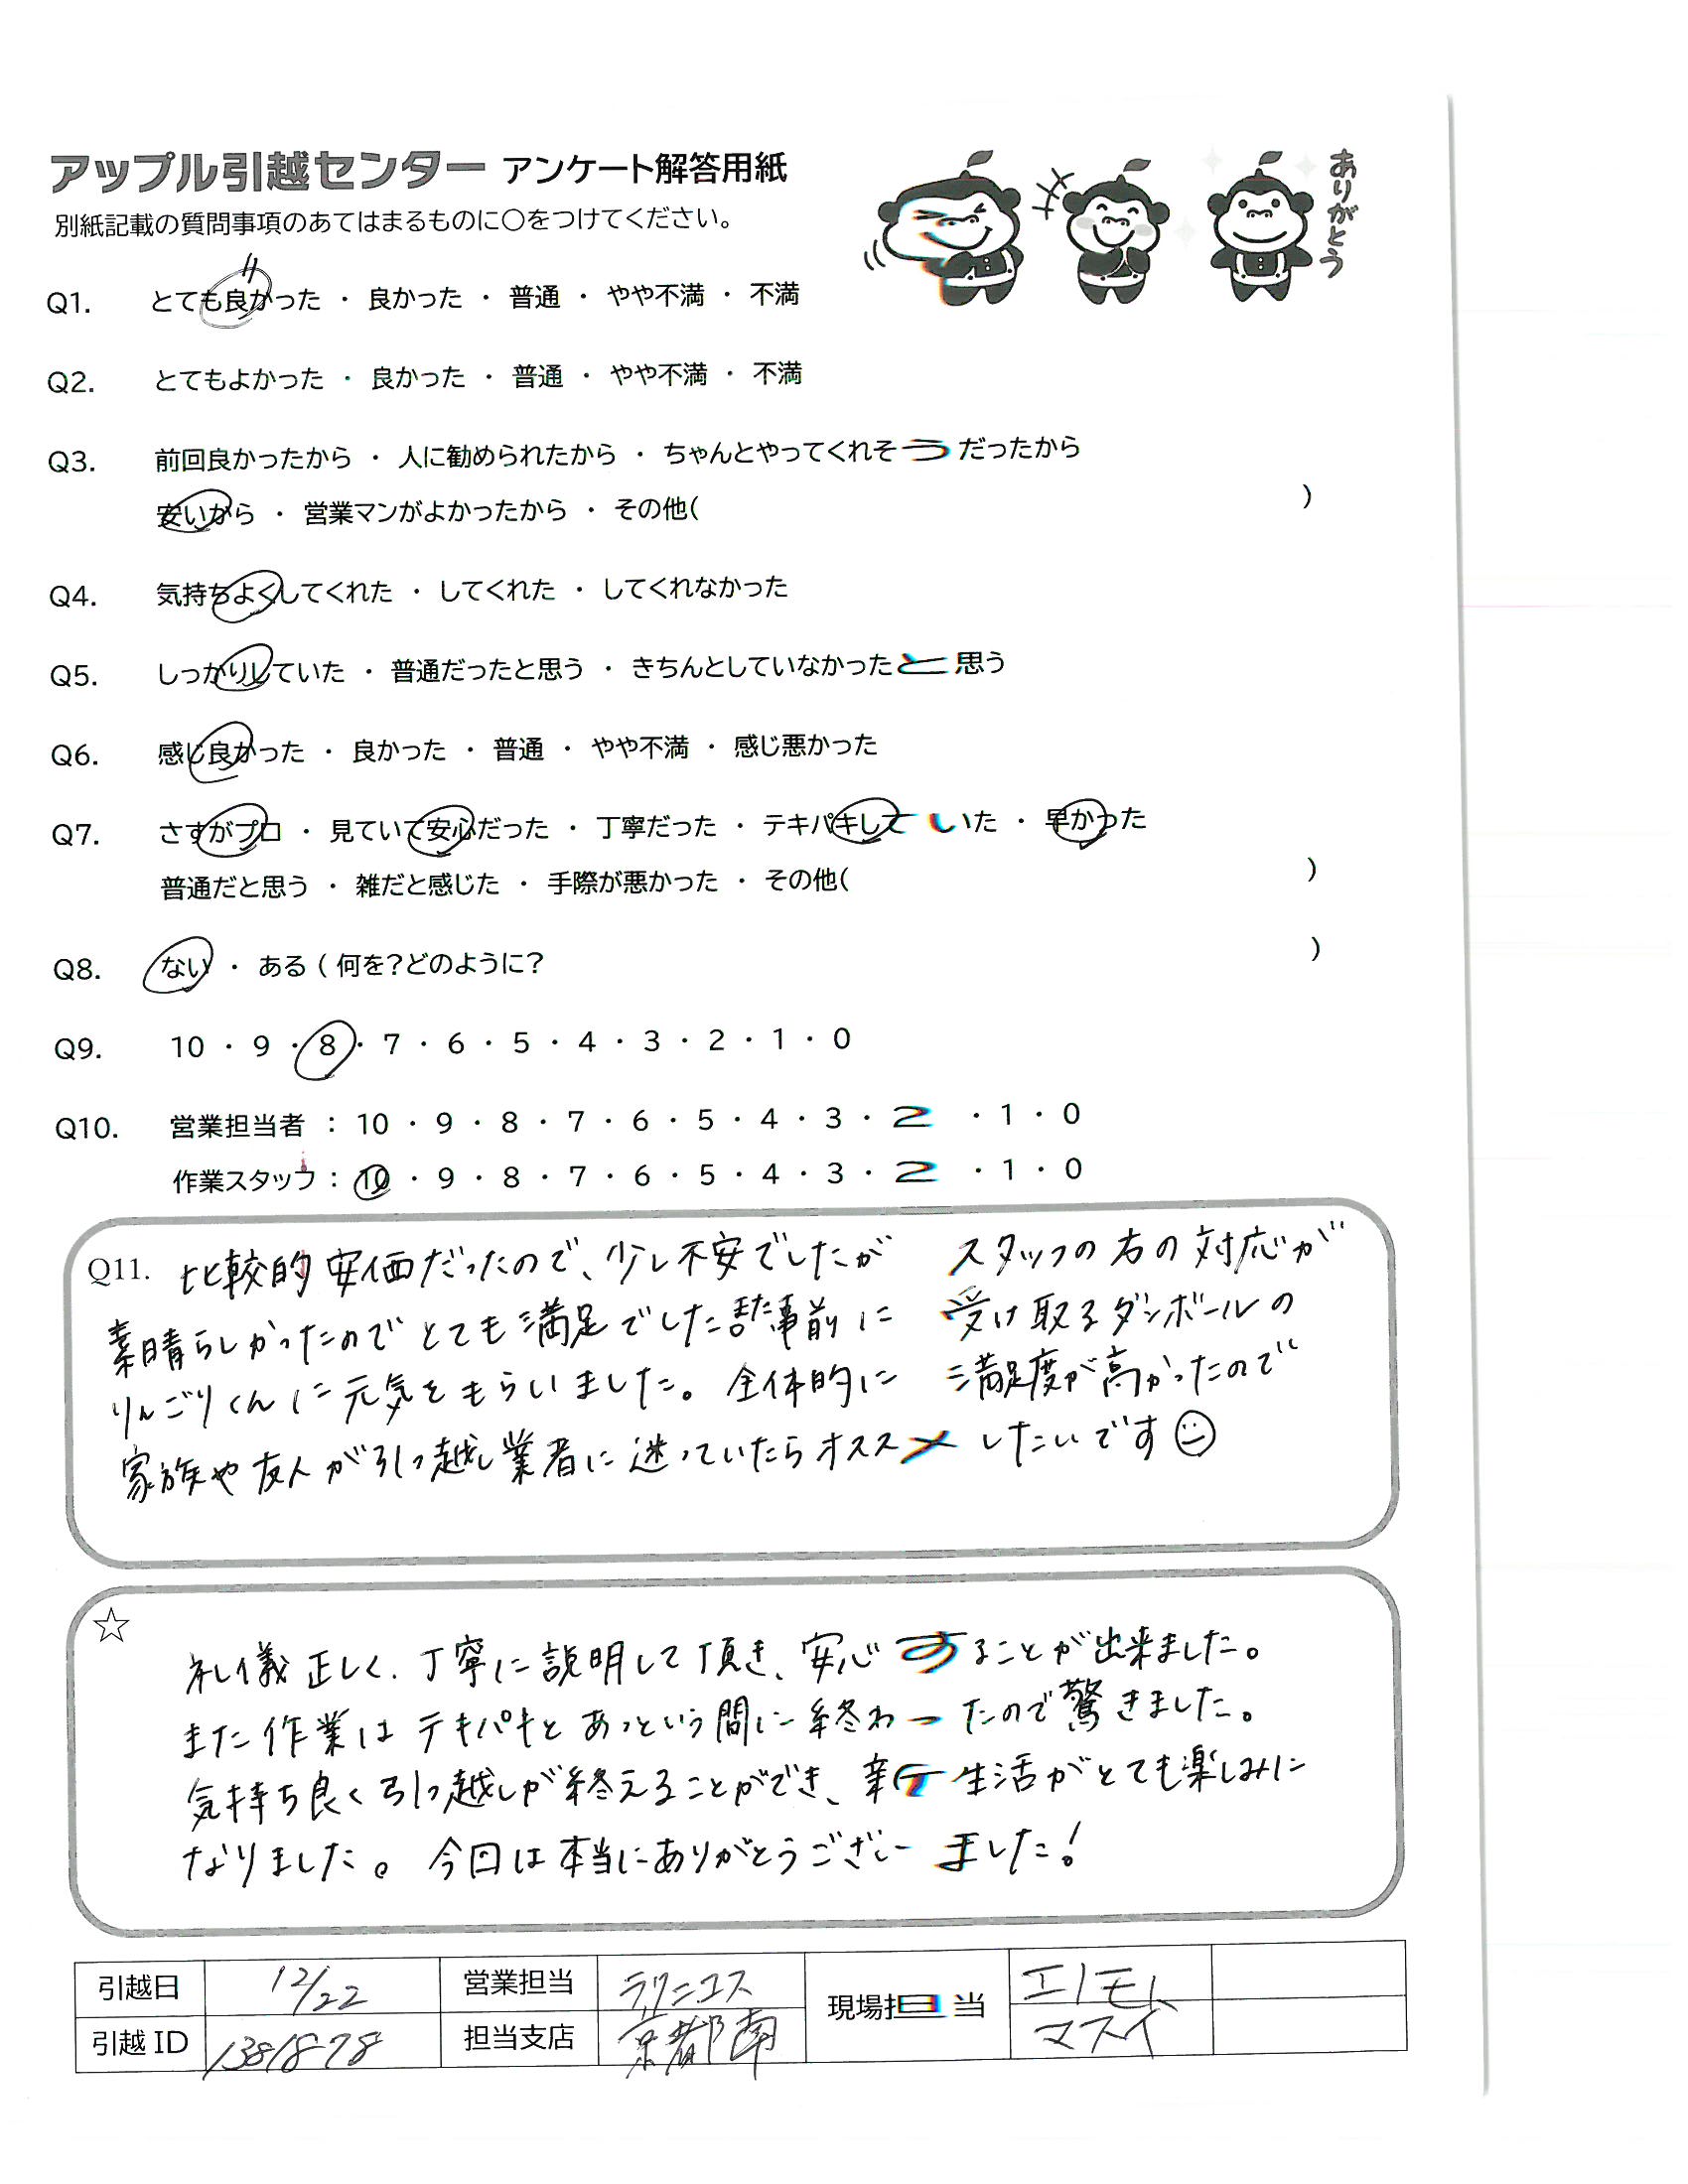 アップル引越センター アンケート解答用紙
ありがとう
別紙記載の質問事項のあてはまるものに〇をつけてください。
Q1. とても良かった ・ 良かった ・ 普通 ・ やや不満 ・ 不満
Q2. とてもよかった ・ 良かった ・ 普通 ・ やや不満 ・ 不満
Q3. 前回良かったから ・ 人に勧められたから ・ ちゃんとやってくれそうだったから
安いから ・ 営業マンがよかったから ・ その他( )
Q4. 気持ちよくしてくれた ・ してくれた ・ してくれなかった
Q5. しっかりしていた ・ 普通だったと思う ・ きちんとしていなかったと思う
Q6. 感じ良かった ・ 良かった ・ 普通 ・ やや不満 ・ 感じ悪かった
Q7. さすがプロ ・ 見ていて安心だった ・ 丁寧だった ・ テキパキしていた ・ 早かった
普通だと思う ・ 雑だと感じた ・ 手際が悪かった ・ その他( )
Q8. ない ・ ある ( 何を?どのように? )
Q9. 10 ・ 9 ・ 8 ・ 7 ・ 6 ・ 5 ・ 4 ・ 3 ・ 2 ・ 1 ・ 0
Q10. 営業担当者 : 10 ・ 9 ・ 8 ・ 7 ・ 6 ・ 5 ・ 4 ・ 3 ・ 2 ・ 1 ・ 0
作業スタッフ : 10 ・ 9 ・ 8 ・ 7 ・ 6 ・ 5 ・ 4 ・ 3 ・ 2 ・ 1 ・ 0
Q11. 比較的安価だったので、少し不安でしたが スタッフの方の対応が
素晴らしかったのでとても満足でした。また事前に受け取るダンボールの
りんごりくんに元気をもらいました。全体的に満足度が高かったので
家族や友人が引っ越し業者に迷っていたらオススメしたいです
☆
礼儀正しく、丁寧に説明して頂き、安心することが出来ました。
また作業はテキパキとあっという間に終わったので驚きました。
気持ち良く引っ越しが終えることができ、新生活がとても楽しみに
なりました。今回は本当にありがとうございました!
引越日 12/22 営業担当 ラクニコス 現場担当 エノモト
引越ID 1381878 担当支店 京都南 マスイ